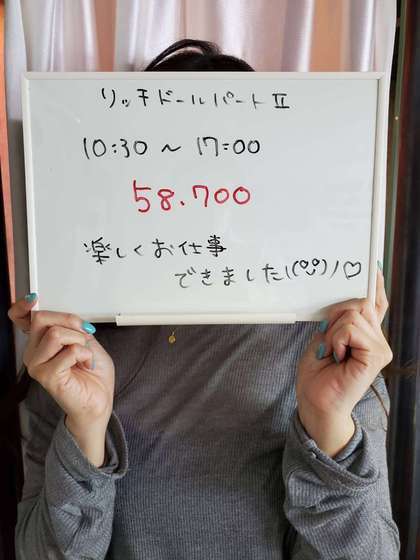 リッチドールパートⅡ
10:30 ～ 17:00
58.700
楽しくお仕事
できました\(^o^)/♡